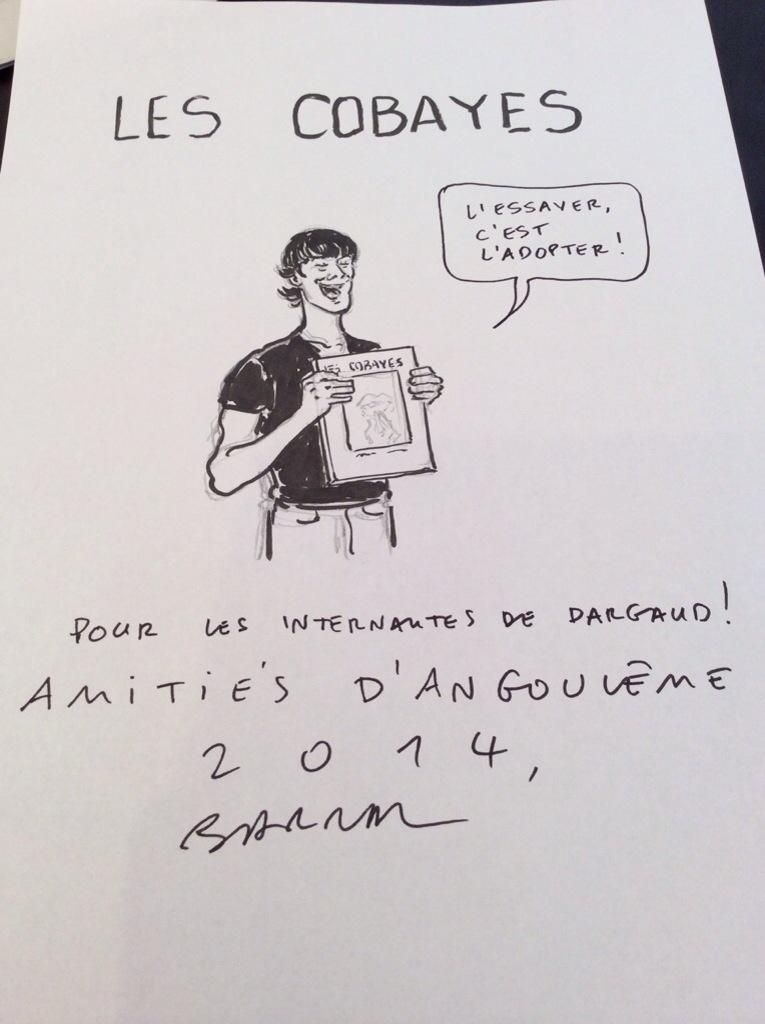 LES COBAYES
L'ESSAYER,
C'EST
L'ADOPTER!
LES COBAYES
POUR LES INTERNAUTES DE DARGAUD!
AMITIÉS D'ANGOULÊME
2014,
BARRAL